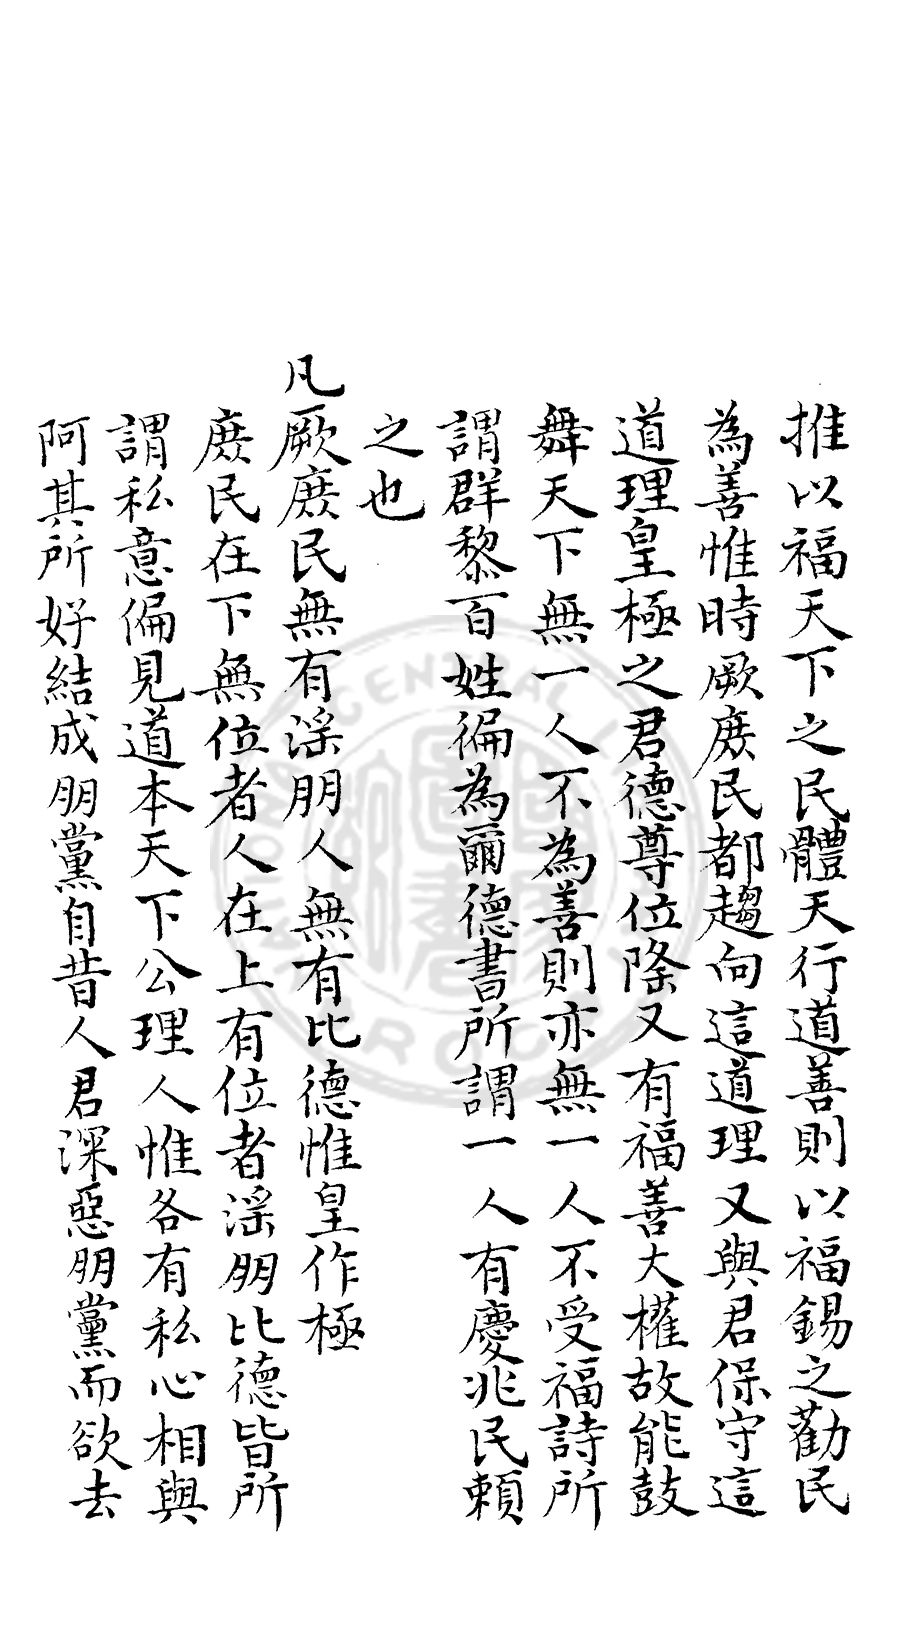 推以福天下之民體天行道善則以福錫之勸民
為善惟時厥庶民都趨向這道理又與君保守這
道理皇極之君德尊位隆又有福善大權故能鼓
舞天下無一人不為善則亦無一人不受福詩所
謂群黎百姓徧為爾德書所謂一人有慶兆民賴
之也
凡厥庶民無有淫朋人無有比德惟皇作極
庶民在下無位者人在上有位者淫朋比德皆所
謂私意偏見道本天下公理人惟各有私心相與
阿其所好結成朋黨自昔人君深惡朋黨而欲去